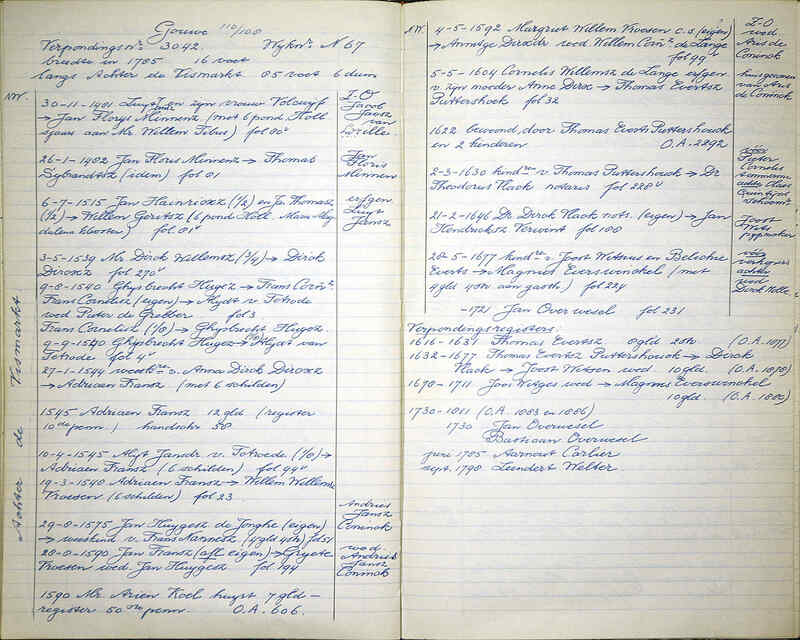 Gouwe 110/108
Verpondingsnr. 3042. Wyknr. N 67
breedte in 1785 16 voet
langs Achter de Vismarkt 85 voet 6 duim
Achter de Vismarkt
NW.
Z-O
Jacob
Jansz
van
30-11-1481 Luyt Jansz en zyn vrouw
→ Jan Florys Minnensz (met 6 pond Holl
sjaars aan Mr. Willem fol 80v
26-1-1482 Jan Floris Minnensz → Thomas
Sybrandtsz (idem) fol 81
Jan
Floris
Minnen
6-7-1515 Jan Heinricxz (1/2) en Jan Thomasz
(1/2) → Willem Geritsz (6 pond Holl. Maria Mag
dalena klooster) fol 81v
erfgen.
Luyt
Jansz
3-5-1539 Mr. Dirck Willemsz (3/4) → Dirck
Dircxz fol 270v
9-8-1540 Ghysbrecht Huyez → Frans Corn.
Frans Cornelisz (eigen) → Alydt v Tetrode
wed Pieter de Grebber fol 3
Frans Cornelisz (1/8) → Ghysbrecht Huyez.
9-9-1540 Ghysbrecht Huyez → Alyt van
Tetrode fol 4v
27-1-1544 v. Anna Dirck Dircxz
→ Adriaen Fransz (met 6 schilden)
1545 Adriaen Fransz 12 gld (register
10de penn.) handschr 38
10-4-1545 Alyt Jansdr v. Tetroede (1/8) →
Adriaen Fransz (6 schilden) fol 94v
19-3-1548 Adriaen Fransz → Willem Willemsz
Vroesen (6 schilden) fol 23
29-8-1575 Jan Huygesz de Jonghe (eigen)
→ weeskind v. Frans Nannesz (4 gld 4 st) fol 51
Andries
Jansz
Coninck
28-8-1590 Jan Fransz (afl. eigen) → Gryete
Vroesen wed Jan Huygesz fol 194
wed.
Andries
Jansz
Coninck
1590 Mr. Arien Koel huyst 7 gld -
register 50ste penn. O.A. 606.
NW.
4-5-1592 Margriet Willem Vroesen c.s. (eigen)
→ Annitge Dircxdr wed Willem Corn. de Lange
fol 99v
Z-O
wed
Aris de
Coninck
5-5-1604 Cornelis Willemsz de Lange erfgen
v zijn moeder Anne Dircx → Thomas Evertsz
Puttershoek fol 32
huisvrouw
van Aris
de Coninck
1622 bewoond door Thomas Everts Puttershouck
en 2 kinderen O.A. 2292
2-3-1630 kindren v Thomas Puttershouck → Dr
Theodorus Vlack notaris fol 228v
vóór
Pieter
Cornelis
21-2-1646 Dr. Dirck Vlack nots. (eigen) → Jan
Hendricksz Verwint fol 108
Joost
Wits
pypmaker
20-5-1677 kindren v Joost Witsius en
Everts → Magnus Everswinckel (met
4 gld 4 st aan gasth) fol 224
vóór
achter
wed
-1721 Jan Overwesel fol 231
Verpondingsregisters:
1616-1631 Thomas Evertsz 8 gld 2 st (O.A. 1077)
1632-1677 Thomas Evertsz Puttershouck → Dirck
Vlack → Joost Witsen wed 10 gld. (O.A. 1078)
1678-1711 Jan Witges wed → Magnus Everswinckel
10 gld. (O.A. 1080)
1730-1811 (O.A. 1083 en 1086)
1730 Jan Overwesel
Bastiaan Overwesel
juni 1785 Aarnout Carlier
sept. 1798 Leendert Welter